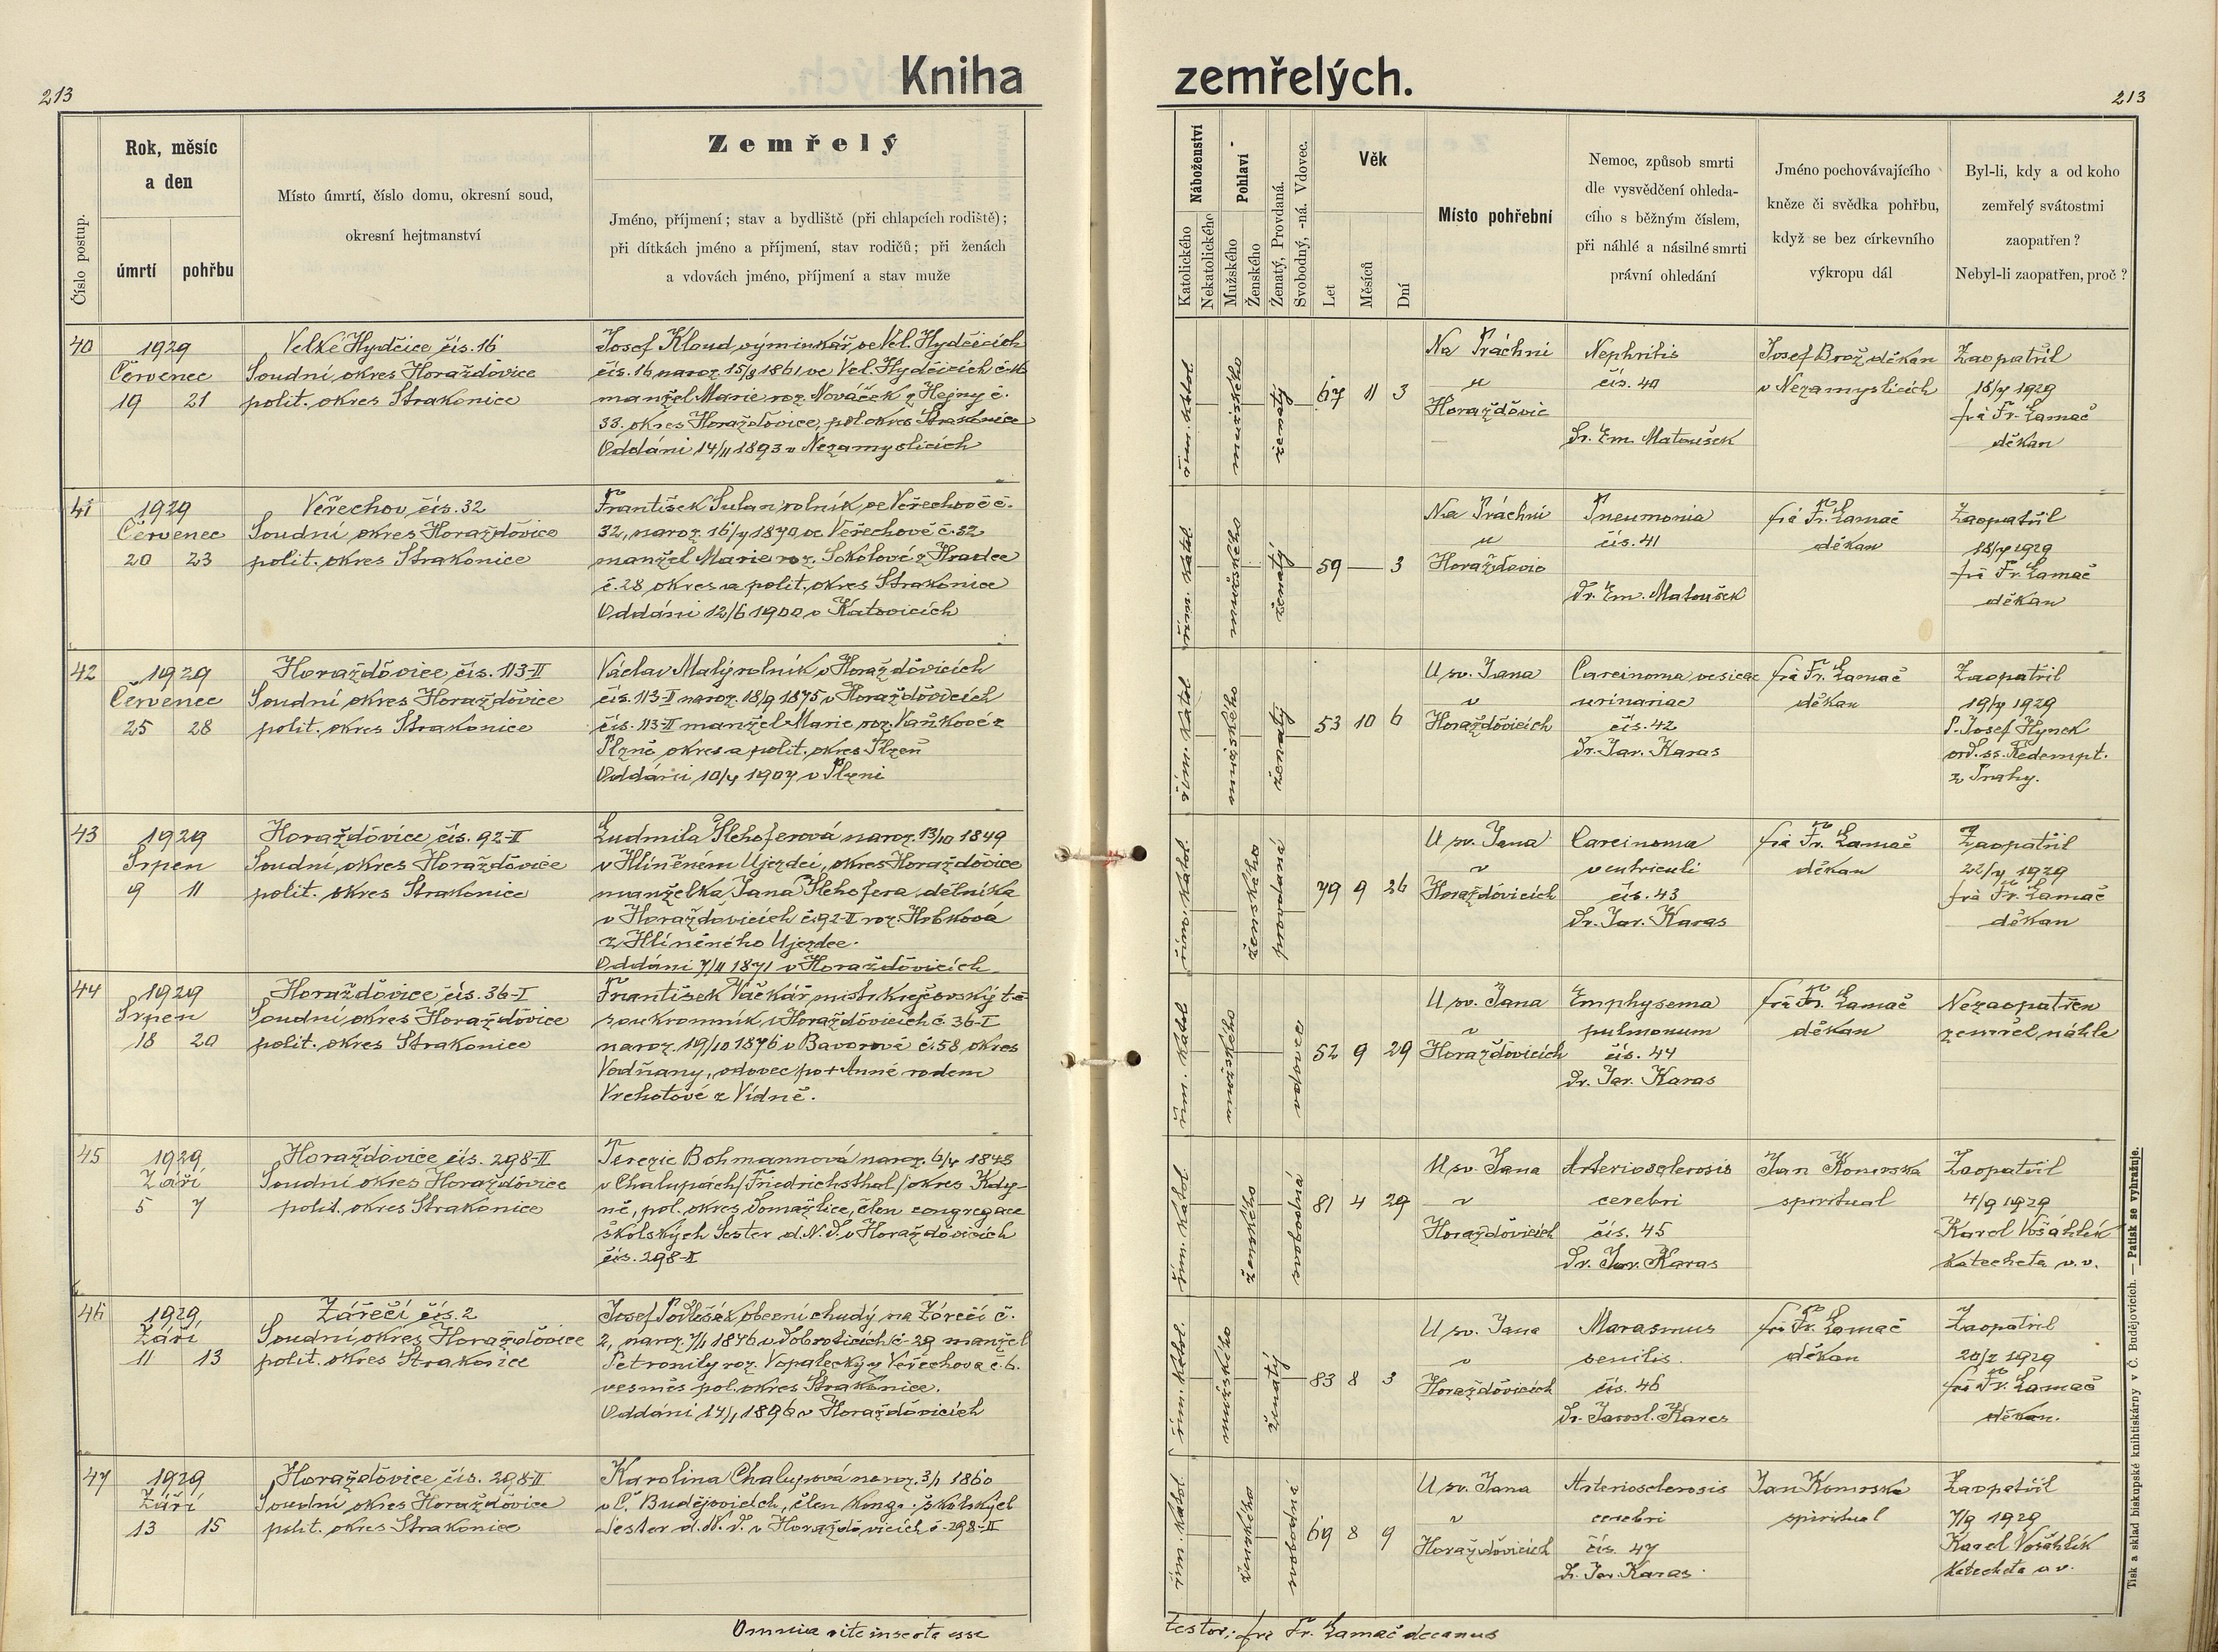 213
Kniha
zemřelých.
213
Číslo postup.
Rok, měsíc
a den
úmrtí
pohřbu
Místo úmrtí, číslo domu, okresní soud,
okresní hejtmanství
Zemřelý
Jméno, příjmení; stav a bydliště (při chlapcích rodiště);
při dítkách jméno a příjmení, stav rodičů; při ženách
a vdovách jméno, příjmení a stav muže
Náboženství
Katolického
Nekatolického
Pohlaví
Mužského
Ženského
Ženatý, Provdaná.
Svobodný, -ná. Vdovec.
Věk
Let
Měsíců
Dní
Místo pohřební
Nemoc, způsob smrti
dle vysvědčení ohleda-
cího s běžným číslem,
při náhlé a násilné smrti
právní ohledání
Jméno pochovávajícího
kněze či svědka pohřbu,
když se bez církevního
výkropu dál
Byl-li, kdy a od koho
zemřelý svátostmi
zaopatřen?
Nebyl-li zaopatřen, proč?
40
1929
Červenec
19 21
Velké Hydčice čís. 16
Soudní okres Horažďovice
polit. okres Strakonice
Josef Kloud výminkář ve Vel. Hydčicích
čís. 16 naroz. 15/8 1861 ve Vel. Hydčicích č. 16
manžel Marie roz. Nováček z Hejny č.
33. okres Horažďovice, pol. okres Strakonice
Oddáni 14/11 1893 v Nezamyslicích
řím. katol.
mužského
ženatý
67 11 3
Na Práchni
u
Horažďovic
Nephritis
čís. 40
Dr. Em. Matoušek
Josef Brož děkan
v Nezamyslicích
Zaopatřil
18/7 1929
frá Fr. Lamač
děkan
41
1929
Červenec
20 23
Veřechov čís. 32
Soudní okres Horažďovice
polit. okres Strakonice
František Sulan rolník ve Veřechově č.
32, naroz. 16/7 1870 ve Veřechově č. 32
manžel Marie roz. Sokolové z Hradce
č. 28 okres a polit. okres Strakonice
Oddáni 12/6 1900 v Katovicích
řím. katol.
mužského
ženatý
59 — 3
Na Práchni
u
Horažďovic
Pneumonia
čís. 41
Dr. Em. Matoušek
frá Fr. Lamač
děkan
Zaopatřil
18/7 1929
frá Fr. Lamač
děkan
42
1929
Červenec
25 28
Horažďovice čís. 113-II
Soudní okres Horažďovice
polit. okres Strakonice
Václav Malý rolník v Horažďovicích
čís. 113-II naroz. 18/9 1875 v Horažďovicích
čís. 113-II manžel Marie roz. Vaňkové z
Plzně okres a polit. okres Plzeň
Oddáni 10/7 1907 v Plzni
řím. katol.
mužského
ženatý
53 10 6
U sv. Jana
v
Horažďovicích
Carcinoma vesicae
urinariae
čís. 42
Dr. Jar. Karas
frá Fr. Lamač
děkan
Zaopatřil
19/7 1929
P. Josef Hynek
ord. ss. Redempt.
z Prahy.
43
1929
Srpen
9 11
Horažďovice čís. 92-II
Soudní okres Horažďovice
polit. okres Strakonice
Ludmila Plehoferová naroz. 13/10 1849
v Hliněném Ujezdci, okres Horažďovice
manželka Jana Plehofera dělníka
v Horažďovicích č. 92-II roz. Hrbková
z Hliněného Ujezdce.
Oddáni 7/11 1871 v Horažďovicích
řím. katol.
ženského
provdaná
79 9 26
U sv. Jana
v
Horažďovicích
Carcinoma
ventriculi
čís. 43
Dr. Jar. Karas
frá Fr. Lamač
děkan
Zaopatřil
22/7 1929
frá Fr. Lamač
děkan
44
1929
Srpen
18 20
Horažďovice čís. 36-I
Soudní okres Horažďovice
polit. okres Strakonice
František Vačkář mistr krejčovský t. č.
soukromník v Horažďovicích č. 36-I
naroz. 19/10 1876 v Bavorově č. 58 okres
Vodňany, vdovec po + Anně rodem
Vrchotové z Vídně.
řím. katol.
mužského
vdovec
52 9 29
U sv. Jana
v
Horažďovicích
Emphysema
pulmonum
čís. 44
Dr. Jar. Karas
frá Fr. Lamač
děkan
Nezaopatřen
zemřel náhle
45
1929
Září
5 7
Horažďovice čís. 298-II
Soudní okres Horažďovice
polit. okres Strakonice
Terezie Bohmannová naroz. 6/4 1848
v Chalupách /Friedrichsthal/ okres Kdy-
ně, pol. okres Domažlice, člen congregace
školských Sester d. N. D. v Horažďovicích
čís. 298-II
řím. katol.
ženského
svobodná
81 4 29
U sv. Jana
v
Horažďovicích
Arteriosclerosis
cerebri
čís. 45
Dr. Jar. Karas
Jan Komrska
spiritual
Zaopatřil
4/9 1929
Karel Vošahlík
katecheta v. v.
46
1929
Září
11 13
Zářečí čís. 2
Soudní okres Horažďovice
polit. okres Strakonice
Josef Podlešák obecní chudý na Zářečí č.
2, naroz. 7/1 1846 v Dobroticích č. 29 manžel
Petronily roz. Vopalecký z Veřechova č. 6.
vesměs pol. okres Strakonice.
Oddáni 14/1 1896 v Horažďovicích
řím. katol.
mužského
ženatý
83 8 3
U sv. Jana
v
Horažďovicích
Marasmus
senilis.
čís. 46
Dr. Jarosl. Karas
frá Fr. Lamač
děkan
Zaopatřil
1929
frá Fr. Lamač
děkan.
47
1929
Září
13 15
Horažďovice čís. 298-II
Soudní okres Horažďovice
polit. okres Strakonice
Karolina Chalupová naroz. 3/1 1860
v Č. Budějovicích, člen kong. školských
Sester d. N. D. v Horažďovicích č. 298-II
řím. katol.
ženského
svobodná
69 8 9
U sv. Jana
v
Horažďovicích
Arteriosclerosis
cerebri
čís. 47
Dr. Jar. Karas
Jan Komrska
spiritual
Zaopatřil
7/9 1929
Karel Vošahlík
katecheta v. v.
Omnia rite inserta esse
testor: fra Fr. Lamač decanus
Tisk a sklad biskupské knihtiskárny v Č. Budějovicích. — Patisk se vyhražuje.